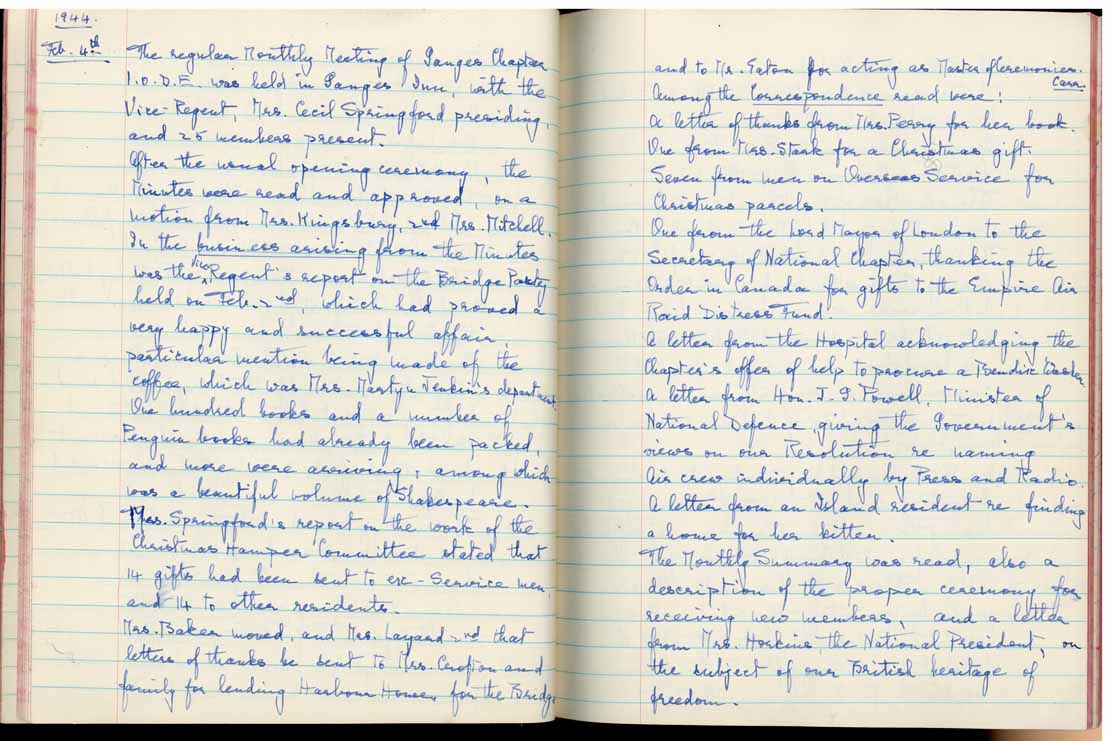 1944.
Feb. 4th
The regular Monthly Meeting of Ganges Chapter
I.O.D.E. was held in Ganges Inn, with the
Vice-Regent, Mrs. Cecil Springford presiding,
and 25 members present.
After the usual opening ceremony, the
Minutes were read and approved, on a
motion from Mrs. Kingsbury, 2nd Mrs. Mitchell.
In the business arising from the Minutes
was the Vice Regent's report on the Bridge Party
held on Feb. 2nd, which had proved a
very happy and successful affair,
particular mention being made of the
coffee, which was Mrs. Martyn Jenkin's department.
One hundred books and a number of
Penguin books had already been packed,
and more were arriving, among which
was a beautiful volume of Shakespeare.
Mrs. Springford's report on the work of the
Christmas Hamper Committee stated that
14 gifts had been sent to ex-Service men,
and 14 to other residents.
Mrs. Baker moved, and Mrs. Layard 2nd that
letters of thanks be sent to Mrs. Crofton and
family for lending Harbour House, for the Bridge
and to Mr. Eaton for acting as Master of Ceremonies.
Carr.
Among the Correspondence read were:
A letter of thanks from Mrs. Perry for her book.
One from Mrs. Stark for a Christmas gift.
Seven from men on Overseas Service for
Christmas parcels.
One from the Lord Mayor of London to the
Secretary of National Chapter, thanking the
Order in Canada for gifts to the Empire Air
Raid Distress Fund.
A letter from the Hospital acknowledging the
Chapter's offer of help to procure a Bendix Washer.
A letter from Hon. J. G. Powell, Minister of
National Defence, giving the Government's
views on our Resolution re naming
Air crew individually by Press and Radio.
A letter from an Island resident re finding
a home for her kitten.
The Monthly Summary was read, also a
description of the proper ceremony for
receiving new members, and a letter
from Mrs. Hoskins, the National President, on
the subject of our British heritage of
freedom.